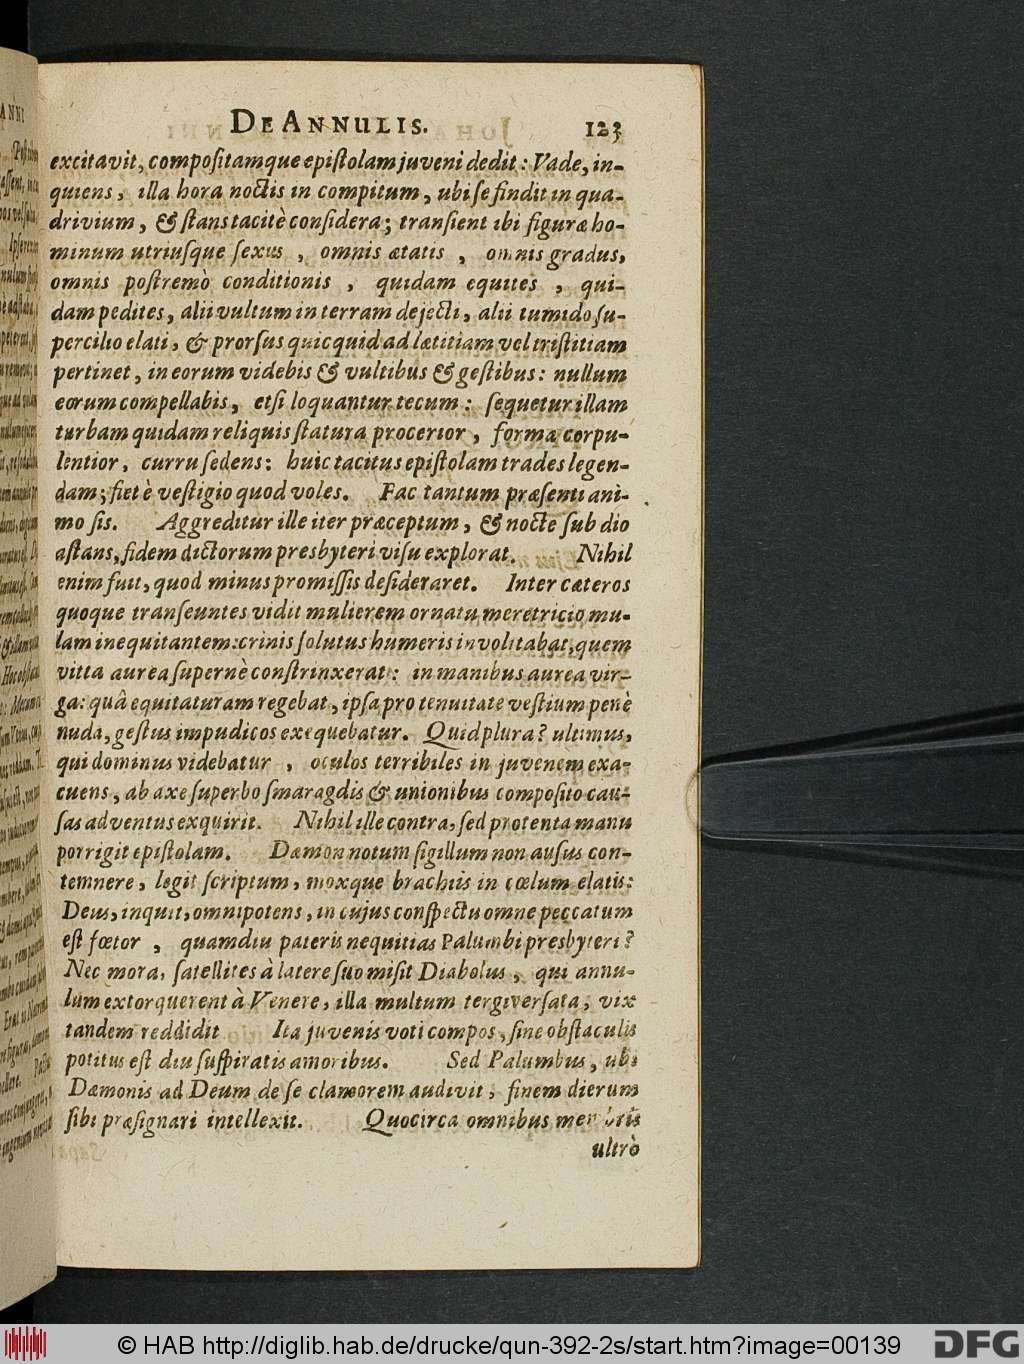 DE ANNULIS. 123
excitavit, compositamque epistolam juveni dedit: Vade, in-
quiens, illa hora noctis in compitum, ubi se findit in qua-
drivium, & stans tacitè considera; transient ibi figuræ ho-
minum utriusque sexus, omnis ætatis, omnis gradus,
omnis postremò conditionis, quidam equites, qui-
dam pedites, alii vultum in terram dejecti, alii tumido su-
percilio elati, & prorsus quicquid ad lætitiam vel tristitiam
pertinet, in eorum videbis & vultibus & gestibus: nullum
eorum compellabis, etsi loquantur tecum: sequetur illam
turbam quidam reliquis statura procerior, forma corpu-
lentior, curru sedens: huic tacitus epistolam trades legen-
dam; fiet è vestigio quod voles. Fac tantum præsenti ani-
mo sis. Aggreditur ille iter præceptum, & nocte sub dio
astans, fidem dictorum presbyteri visu explorat. Nihil
enim fuit, quod minus promissis desideraret. Inter cæteros
quoque transeuntes vidit mulierem ornatu meretricio mu-
lam inequitantem: crinis solutus humeris involitabat, quem
vitta aurea supernè constrinxerat: in manibus aurea vir-
ga: quâ equitaturam regebat, ipsa pro tenuitate vestium penè
nuda, gestus impudicos exequebatur. Quid plura? ultimus,
qui dominus videbatur, oculos terribiles in juvenem exa-
cuens, ab axe superbo smaragdis & unionibus composito cau-
sas adventus exquirit. Nihil ille contra, sed protenta manu
porrigit epistolam. Dæmon notum sigillum non ausus con-
temnere, legit scriptum, moxque brachiis in cœlum elatis:
Deus, inquit, omnipotens, in cujus conspectu omne peccatum
est fœtor, quamdiu pateris nequitias Palumbi presbyteri?
Nec mora, satellites à latere suo misit Diabolus, qui annu-
lum extorquerent à Venere, illa multum tergiversata, vix
tandem reddidit Ita juvenis voti compos, sine obstaculis
potitus est diu suspiratis amoribus. Sed Palumbus, ubi
Dæmonis ad Deum de se clamorem audivit, finem dierum
sibi præsignari intellexit. Quocirca omnibus membris
ultrò
© HAB http://diglib.hab.de/drucke/qun-392-2s/start.htm?image=00139
DFG